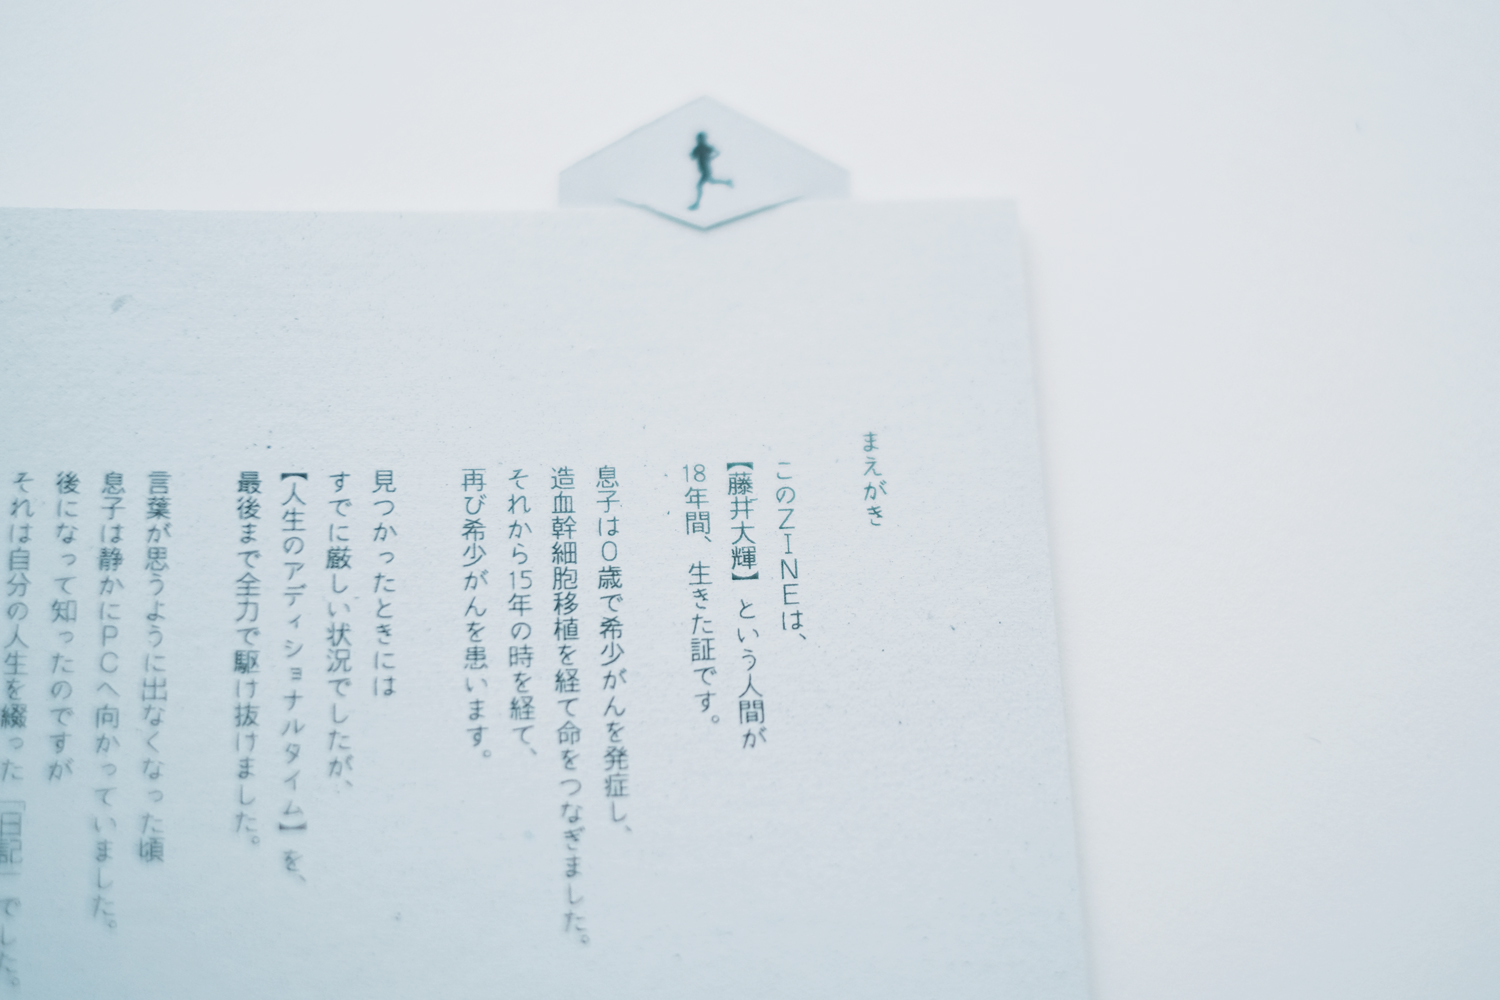 まえがき
このZINEは、
【藤井大輝】という人間が
18年間、生きた証です。
息子は0歳で希少がんを発症し、
造血幹細胞移植を経て命をつなぎました。
それから15年の時を経て、
再び希少がんを患います。
見つかったときには
すでに厳しい状況でしたが、
【人生のアディショナルタイム】を、
最後まで全力で駆け抜けました。
言葉が思うように出なくなった頃
息子は静かにPCへ向かっていました。
後になって知ったのですが
それは自分の人生を綴った「日記」でした。